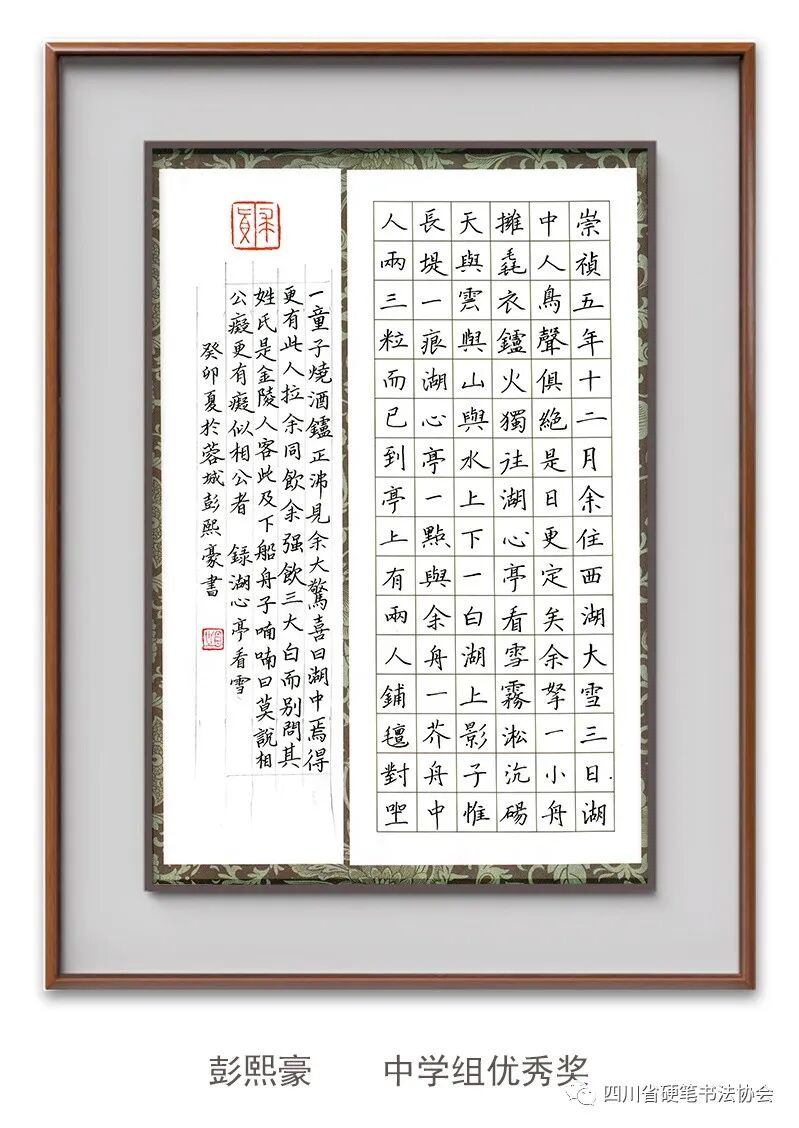 崇禎五年十二月余住西湖大雪三日湖
中人鳥聲俱絶是日更定矣余拏一小舟
擁毳衣鑪火獨往湖心亭看雪霧淞沆碭
天與雲與山與水上下一白湖上影子惟
長堤一痕湖心亭一點與余舟一芥舟中
人兩三粒而已到亭上有兩人鋪氊對坐
一童子燒酒鑪正沸見余大驚喜曰湖中焉得
更有此人拉余同飲余强飲三大白而别問其
姓氏是金陵人客此及下船舟子喃喃曰莫說相
公癡更有癡似相公者 録湖心亭看雪
癸卯夏於蓉城彭熙豪書
彭熙豪 中学组优秀奖
四川省硬笔书法协会